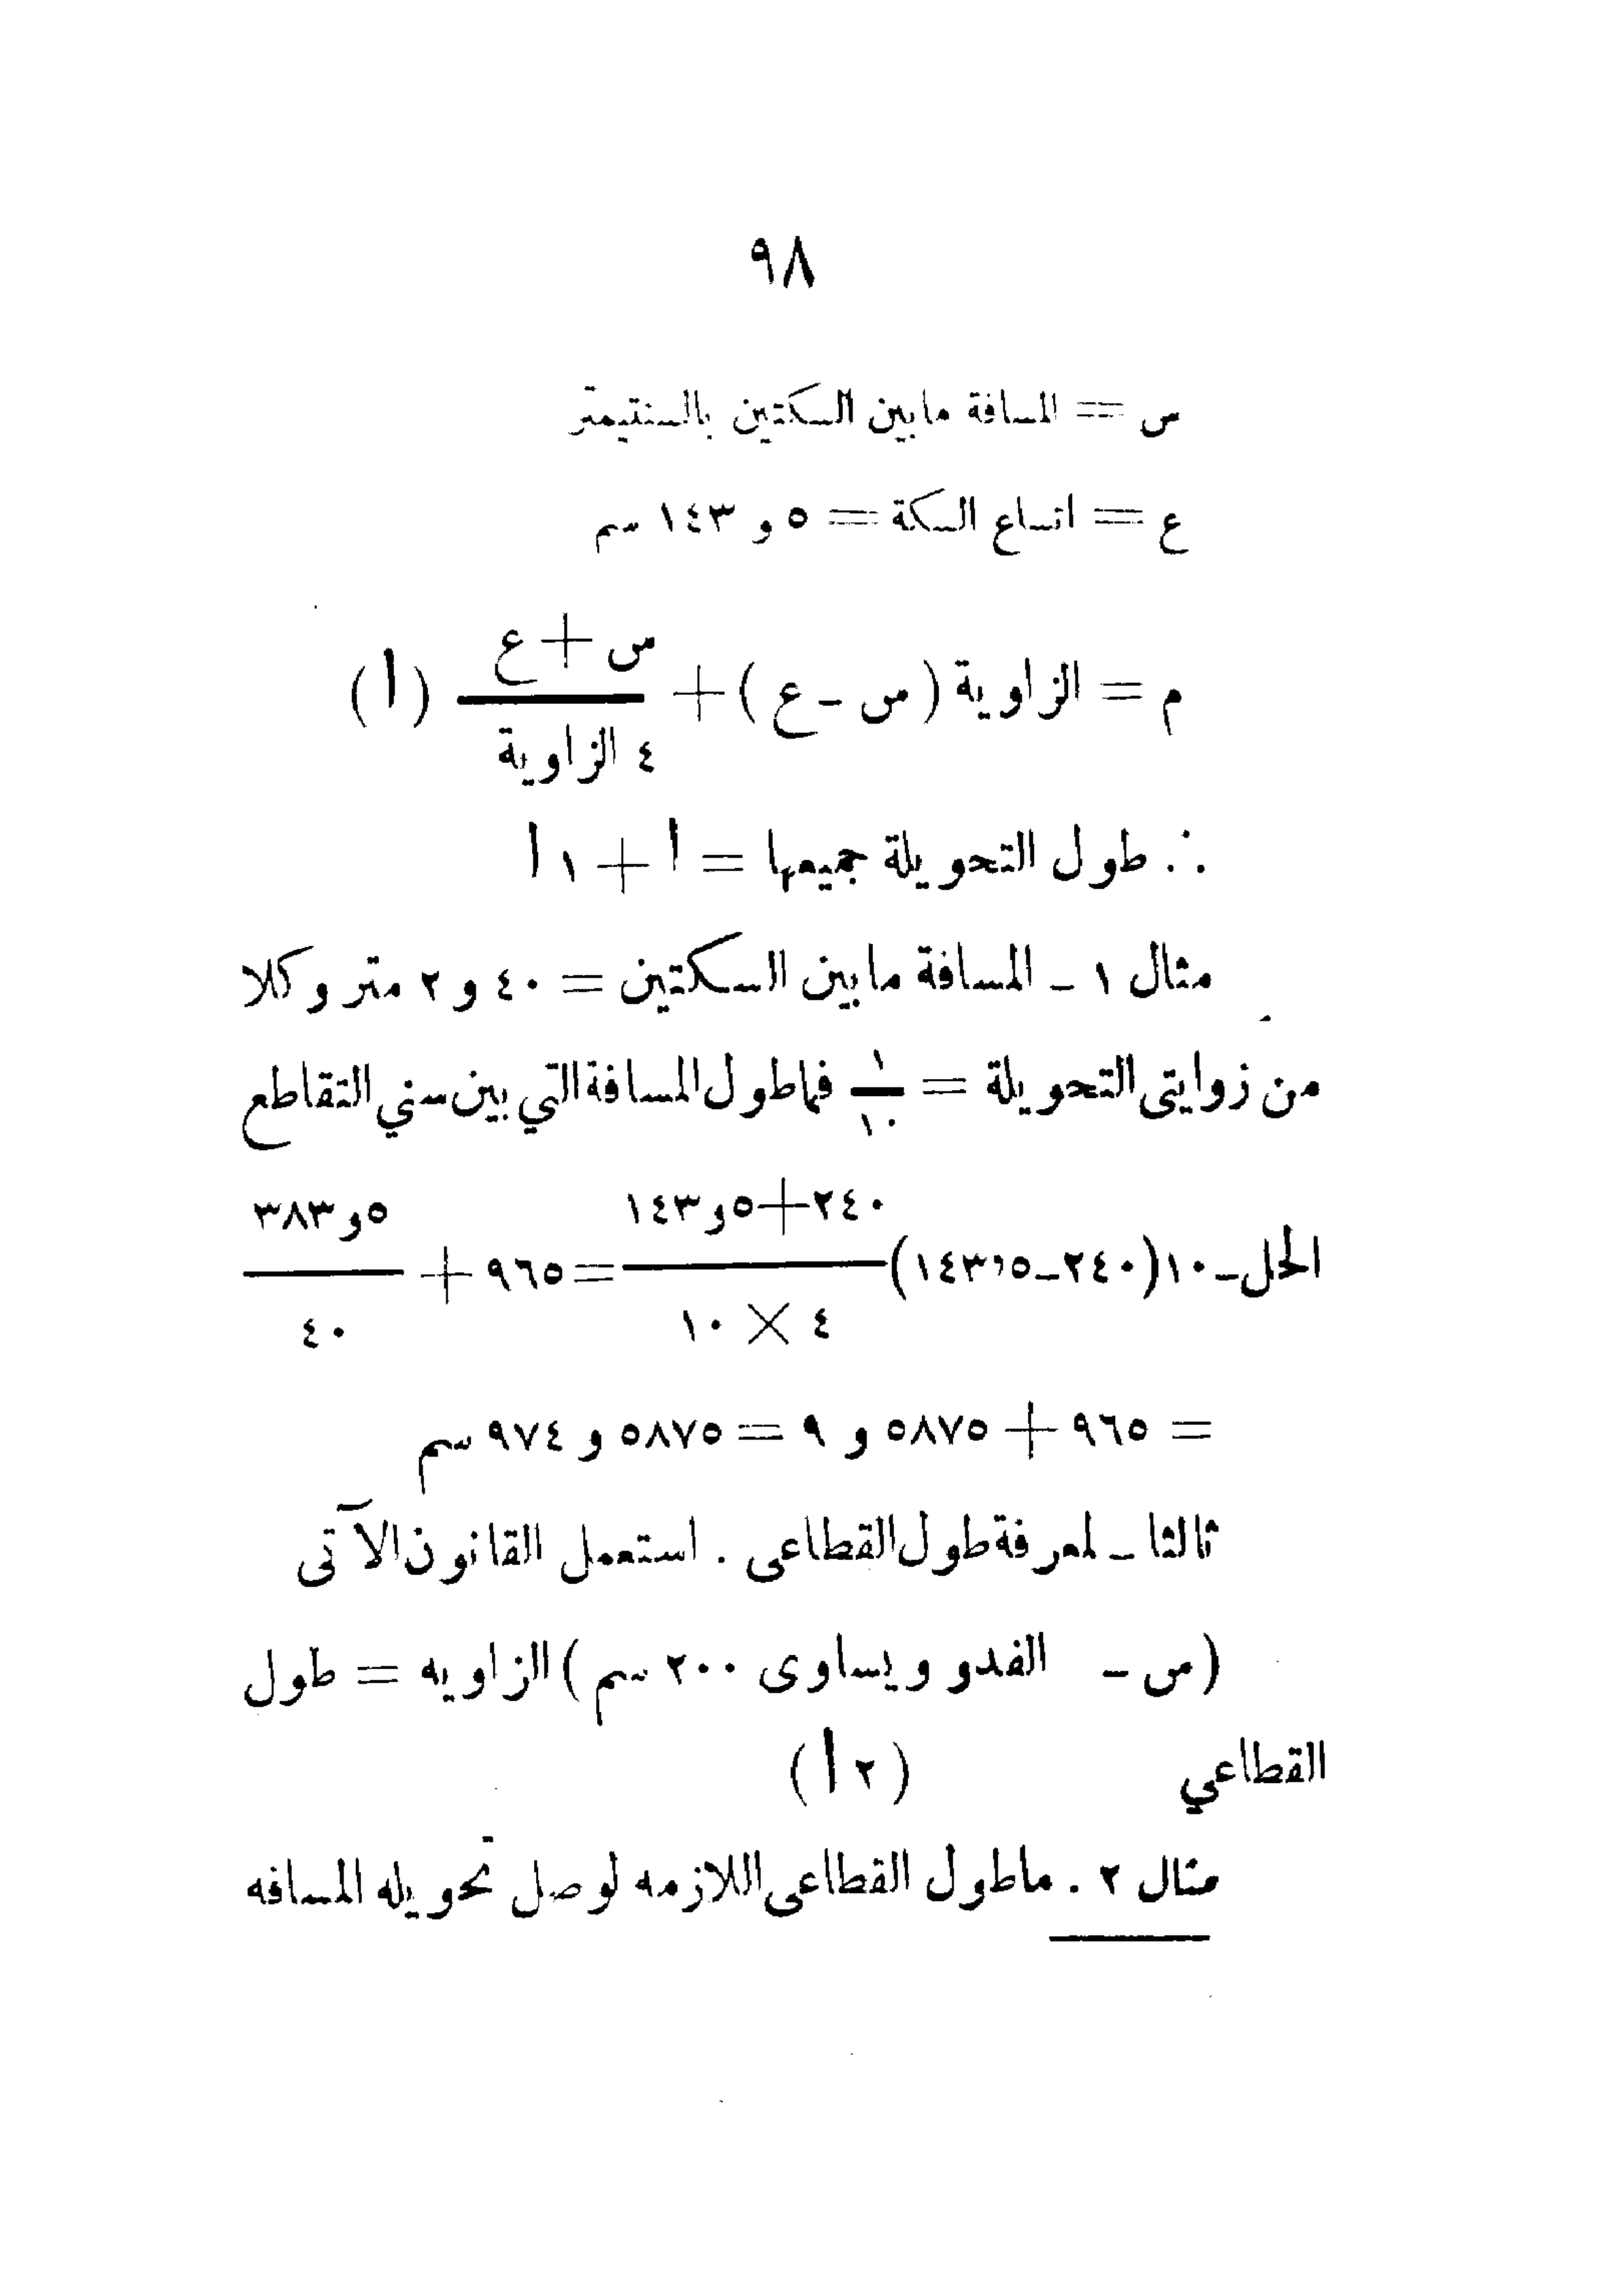 ٩٨
س = المسافة مابين السكتين بالسنتيمتر
ع = اتساع السكة = ٥ و ١٤٣ سم
س + ع
م = الزاوية ( س - ع ) + ــــــــ ( أ )
٤ الزاوية
∴ طول التحويلة جميعها = أ + ١ أ
مثال ١ - المسافة مابين السكتين = ٤٠ و ٢ متر وكلا
من زوايتى التحويلة = ١/١٠ فماطول المسافة التي بين سني التقاطع
٢٤٠+٥و١٤٣ ٥و٣٨٣
الحل - ١٠(٢٤٠-١٤٣٫٥) ــــــــ = ٩٦٥ + ــــــــ
٤ × ١٠ ٤٠
= ٩٦٥ + ٥٨٧٥ و ٩ = ٥٨٧٥ و ٩٧٤ سم
ثالثا - لمعرفة طول القطاعى . استعمل القانون الآتى
(س - الفدو ويساوى ٢٠٠ سم) الزاويه = طول
القطاعي ( ٢ أ )
مثال ٢ . ماطول القطاعى اللازمه لوصل تحويله المسافه